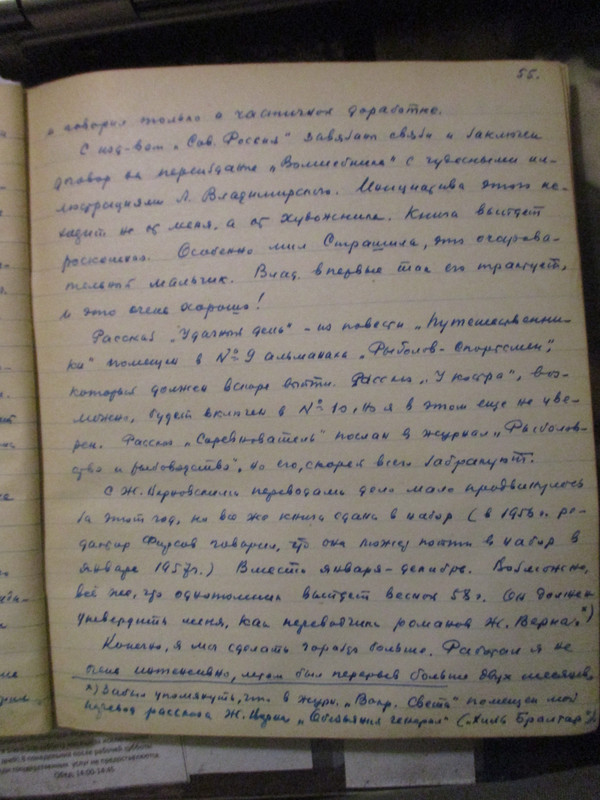 55.
и говорил только о частичной доработке.
С изд-вом „Сов. Россия" завязал связи и заключил
договор на переиздание „Волшебника" с чудесными ил-
люстрациями Л. Владимирского. Инициатива этого ис-
ходит не от меня, а от художника. Книга выйдет
роскошная. Особенно мил Страшила, это очарова-
тельный мальчик. Влад. впервые так его трактует,
и это очень хорошо!
Рассказ „Удачный день" – из повести „Путешественни-
ки" помещен в № 9 альманаха „Рыболов-Спортсмен",
который должен вскоре выйти. Рассказ „У костра", воз-
можно, будет включен в № 10, но я в этом еще не уве-
рен. Рассказ „Соревнователь" послан в журнал „Рыболов-
ство и рыбоводство", но его, скорей всего забракуют.
С Ж. Верновскими переводами дело мало продвинулось
за этот год, но все же книга сдана в набор (в 1956 г. ре-
дактор Фирсов говорил, что она может пойти в набор в
январе 1957 г.) Вместо января – декабрь. Возможно,
всё же, что однотомник выйдет весной 58 г. Он должен
утвердить меня, как переводчика романов Ж. Верна.*)
Конечно, я мог сделать гораздо больше. Работал я не
очень интенсивно, летом был перерыв больше двух месяцев,
*) Забыл упомянуть, что в журн. „Вокр. Света" помещен мой
перевод рассказа Ж. Верна „Обезьяний генерал" („Хиль Бралтар").
Обед: 14:00-14:45